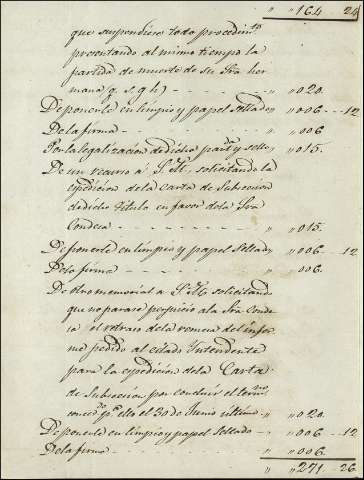 " " 164 - 24
que suspendiese todo procedim.to
presentando al mismo tiempo la
partida de muerte de su Sra her
mana q. s. g. h) - - - - " " 020.
De ponerle en limpio y papel sellado " " 006 - - 12
De la firma - - - - " " 006
Por la legalizacion de dicho partda y sello, " " 015.
De un recurso a S. M. solicitando la
expedicion de la Carta de Subcecion
de dicho titulo en favor de la Sra
Condesa - - - - " " 015.
De ponerle en limpio y papel Sellado " " 006 - - 12
De la firma - - - - " " 006.
De otro memorial a S. M. solicitando
que no parase perjuicio a la Sra Conde
sa el retraso de la remesa del infor
me pedido al citado Yntendente
para la expedicion de la Carta
de Subcecion por concluir el term.no
conced.o p.a ello el 30 de Junio ultimo - " " 020.
De ponerle en limpio y papel Sellado - " " 006 - - 12
De la firma - - - - " " 006.
" " 271 - 26.